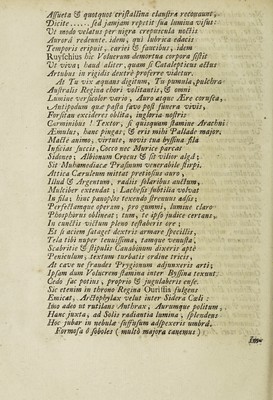 Assueta & quotquot cristallina claustra recouunt,
Dicite, ..... sed jamjam repetit sua lumina visus:
Ut modo velatus per nigra crepuscula noctis
Aurorâ redeunte. idem, qui lubrica edacis
Temporis eripuit, caries & faucibus, idem
Ruyschius hîc Volucrem demortua corpora sistit
Ut viva; haud aliter, quam si Catalepticus actus
Artubus in rigidis dextrè proferre videtur.
At Tu vix aquans digitum, Tu pumula, pulchra
Australis Regina chori volitantis, & omni
Lumine versicolor vario, Auro atque Ære corusca,
Antipodum qua pasta favo post funera vivis,
Forsitan excideres oblita, ingloria nostris
Carminibus! Textor, si quisquam stamine Arachni
Æmulus, hanc pingas, & eris mihi Pallade major.
Macte animo, virtute, novis tua byssina fila
Inficias succis, Cocco nec Murice parcat
Sidonos; Albionum Crocus & sit vilior alga;
Sit Muhamedica Prasinum venerabile stirpi.
Attica Cæruleum mittat pretiosius auro,
Illud & Argentum, radiis solaribus auctum,
Mulciber extendat; Lachesis subtilia volvat
In fila; hinc panoplus texendo strenuus adsis:
Perfectamque operam, pro gummi, lumine claro
Phosphorus oblineat; tum, te ipso judice certans,
In cunctis victum pleno testaberis ore;
Et si aciem satagat dextris armare specillis,
Tela tibi nuper tenuissima, tamque venusta,
Scabritie & stipulis Canabinum dixeris apte
Peniculum, textum turbatis ordine tricis,
At cave ne fraudes Prygionum adjunxeris arti;
Ipsam dum Volucrem stamina inter Byssina texunt.
Cedo sac potius, proprio & jugularis ense.
Sic etenim in throno Regina fulgens
Emicat, Arctophylax velut inter Sidera Cœli:
Imo adeo ut rutilans Anthrax, Aurumque politum,
Hanc juxta, ad Solis radiantia lumina, splendens
Hoc jubar in nebulæ suffusum adspexeris umbrâ.
Formosa ô soboles (multò majora canemus)